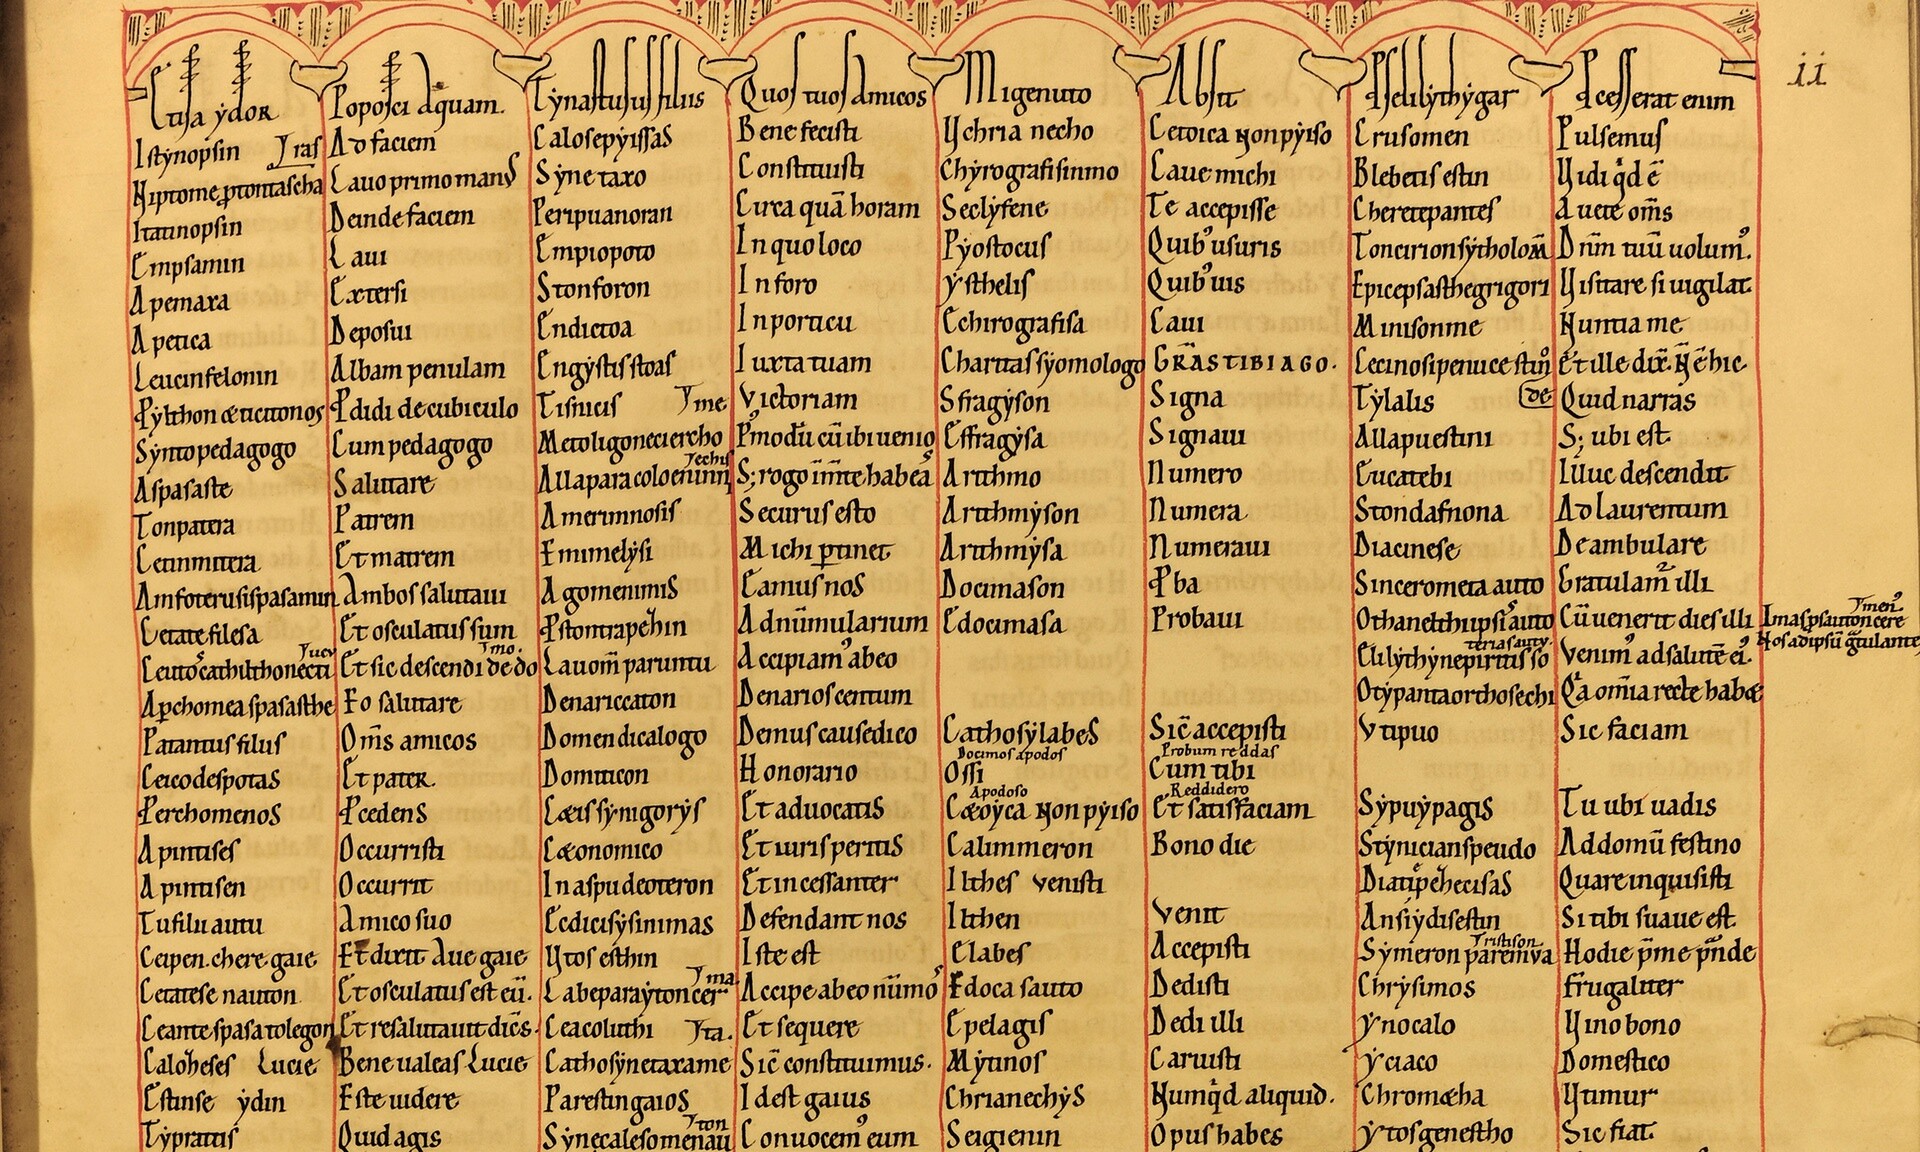 ii
Etisa ydor
Istynopsin iras
Niptome protontascha
Itatinopsin
Empsamin
Apemaxa
Apetica
Leucinfelonin
Pylthon œticitonos
Synto pedagogo
Aspasaste
Tonpatera
Cetinmitera
Amfoterusispasamin
Cetatefilesa
Ceutocathilthonectu
Aperchomeaspasasthe
Patantusfilus
Ceicodespotas
Perchomenos
Apintises
Apintisen
Tufiluautu
Ceipen.chere gaie
Cetatese nauton
Ceantespasatolegon
Caloheses Lucie
Estinse ydin
Typrattis
Poposci aquam.
Ad faciem
Lauo primo manus
Deinde faciem
Laui
Extersi
Deposui
Albam penulam
Pdidi de cubiculo
Cum pedagogo
Salutare
Patrem
Et matrem
Ambos salutaui
Et osculatus sum
Et sic descendi de domo.
Eo salutare
Om̄s amicos
Et pater.
Pcedens
Occurristi
Occurrit
Amico suo
Et dixit Aue gaie
Et osculatus est eū.
Et resalutauit dicēs.
Bene ualeas Lucie
Este uidere
Quid agis
Tynastususfilus
Calosepyissas
Synetaxo
Peripuanoran
Empiopoto
Stonforon
Endictoa
Engystisstoas
Tisnicis me
Metoligoneciercho
Allaparacoloeninn iechis
Amerimnosis
Emimelysi
Agomenimis
Pstontrapehin
Lauom̄ paruntu
Denariccaton
Domendicalogo
Domiticon
Cæissynigorys
Cæonomico
Inaspudeoteron
Ecdicisysinimas
Ytos esthin
Labeparaytoncerma
Ceacoluthi
Cathosynetaxame ta.
Parestingaios
Synecalesomenauton
Quos tuos amicos
Bene fecisti
Constituisti
Circa quā horam
In quo loco
In foro
In porticu
Iuxta tuam
Victoriam
Pmodū cū ibi uenio
S; rogo īmte habeas
Securus esto
Michi ptinet
Eamus nos
Ad nūmularium
Accipiam' abeo
Denarios centum
Demus causedico
Honorario
Et aduocatis
Et iuris peritis
Et incessanter
Defendant nos
Iste est
Accipe abeo nūmos
Et sequere
Sic̄ constituimus.
Idest gaius
Conuocem' eum
Migenuto
Ychria necho
Chyrografisinmo
Seclyfene
Pyostocus
ysthelis
Echirografisa
Charitassyomologo
Sfragyson
Effragysa
Arithmo
Arithmyson
Arithmysa
Docimason
Edocimasa
Cathosylabes
Docimos apodos
Ossi
Apodoso
Cæoyca nonpyiso
Calimmeron
Ilthes venisti
Ilthen
Elabes
Edoca sauto
Epelagis
Mytinos
Chrianechys
Seigienin
Absit
Cetoica nonpyiso
Caue michi
Te accepisse
Quib' usuris
Quib' uis
Caui
GRĀS TIBI AGO.
Signa
Signaui
Numero
Numera
Numeraui
Pba
Probaui
Sic̄ accepisti
Probum reddas
Cum tibi
Reddidero
Et satisfaciam
Bono die
Venit
Accepisti
Dedisti
Dedi illi
Caruisti
Numqd aliquid.
Opus habes
Pselilythygar
Erusomen
Blebetis estin
Cheretepantes
Toncirionsytholom̄
Epicepsasthegrigori
Minisonme
Cecinosipenuce stin
Tylalis de
Allapuestini
Eucatebi
Stondafnona
Diacinese
Sincerometa auto
Othanelthiipsis auto
teriasauty.
Elilythynepiritisso
Otypantaorthosechi
Vtipuo
Sypuypagis
Stynicianspeudo
Diatipehecisas
Ansiydisestin
Symeron paremya tristison
Chrysimos
ynocalo
yciaco
Chromœha
ytosgenestho
Pcesserat enim
Pulsemus
Vidi qd ē
Auete om̄s
Dn̄m tuū uolum'.
Visitare si uigilat.
Nuntia me
Et ille dix. N̄ ē hic.
Quid narras
S; ubi est
Illuc descendit
Ad laurentum
Deambulare
Gratulam illi
Cū uenerit dies illi
Venim' ad salutē ei'.
Qa om̄ia recte habœ
Sic faciam
Tu ubi uadis
Addomū festino
Quare inquisisti
Si tibi suaue est
Hodie p̄me p̄nde
frugaliter
Vino bono
Domestico
Vtimur
Sic fiat.
Imaspsautoncere imen'.
Nos adipsū gratulante